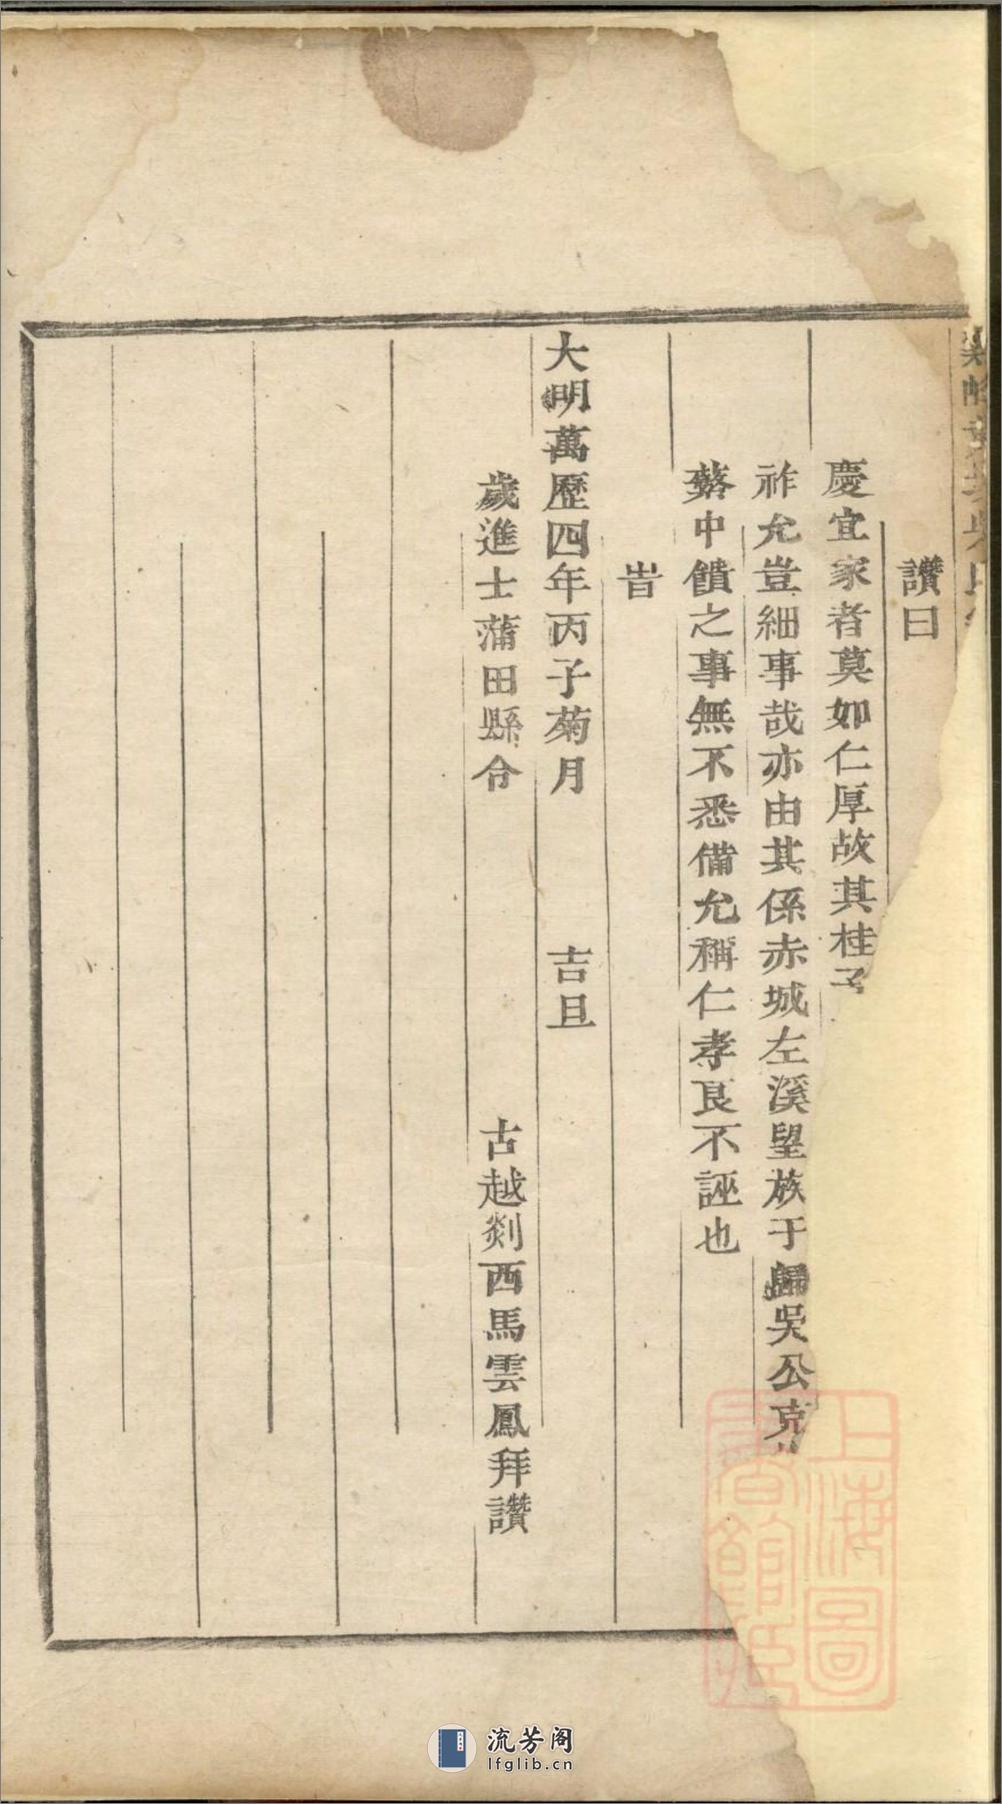 吳氏
讚曰
慶宜家者莫如仁厚故其桂子
祚允豈細事哉亦由其係赤城左溪望族于歸吳公克
蘩中饋之事無不悉備允稱仁孝良不誣也
旹
大明萬歷四年丙子菊月 吉旦
歲進士蒲田縣令 古越剡西馬雲鳳拜讚
上海圖書館藏
流芳阁
lfglib.cn